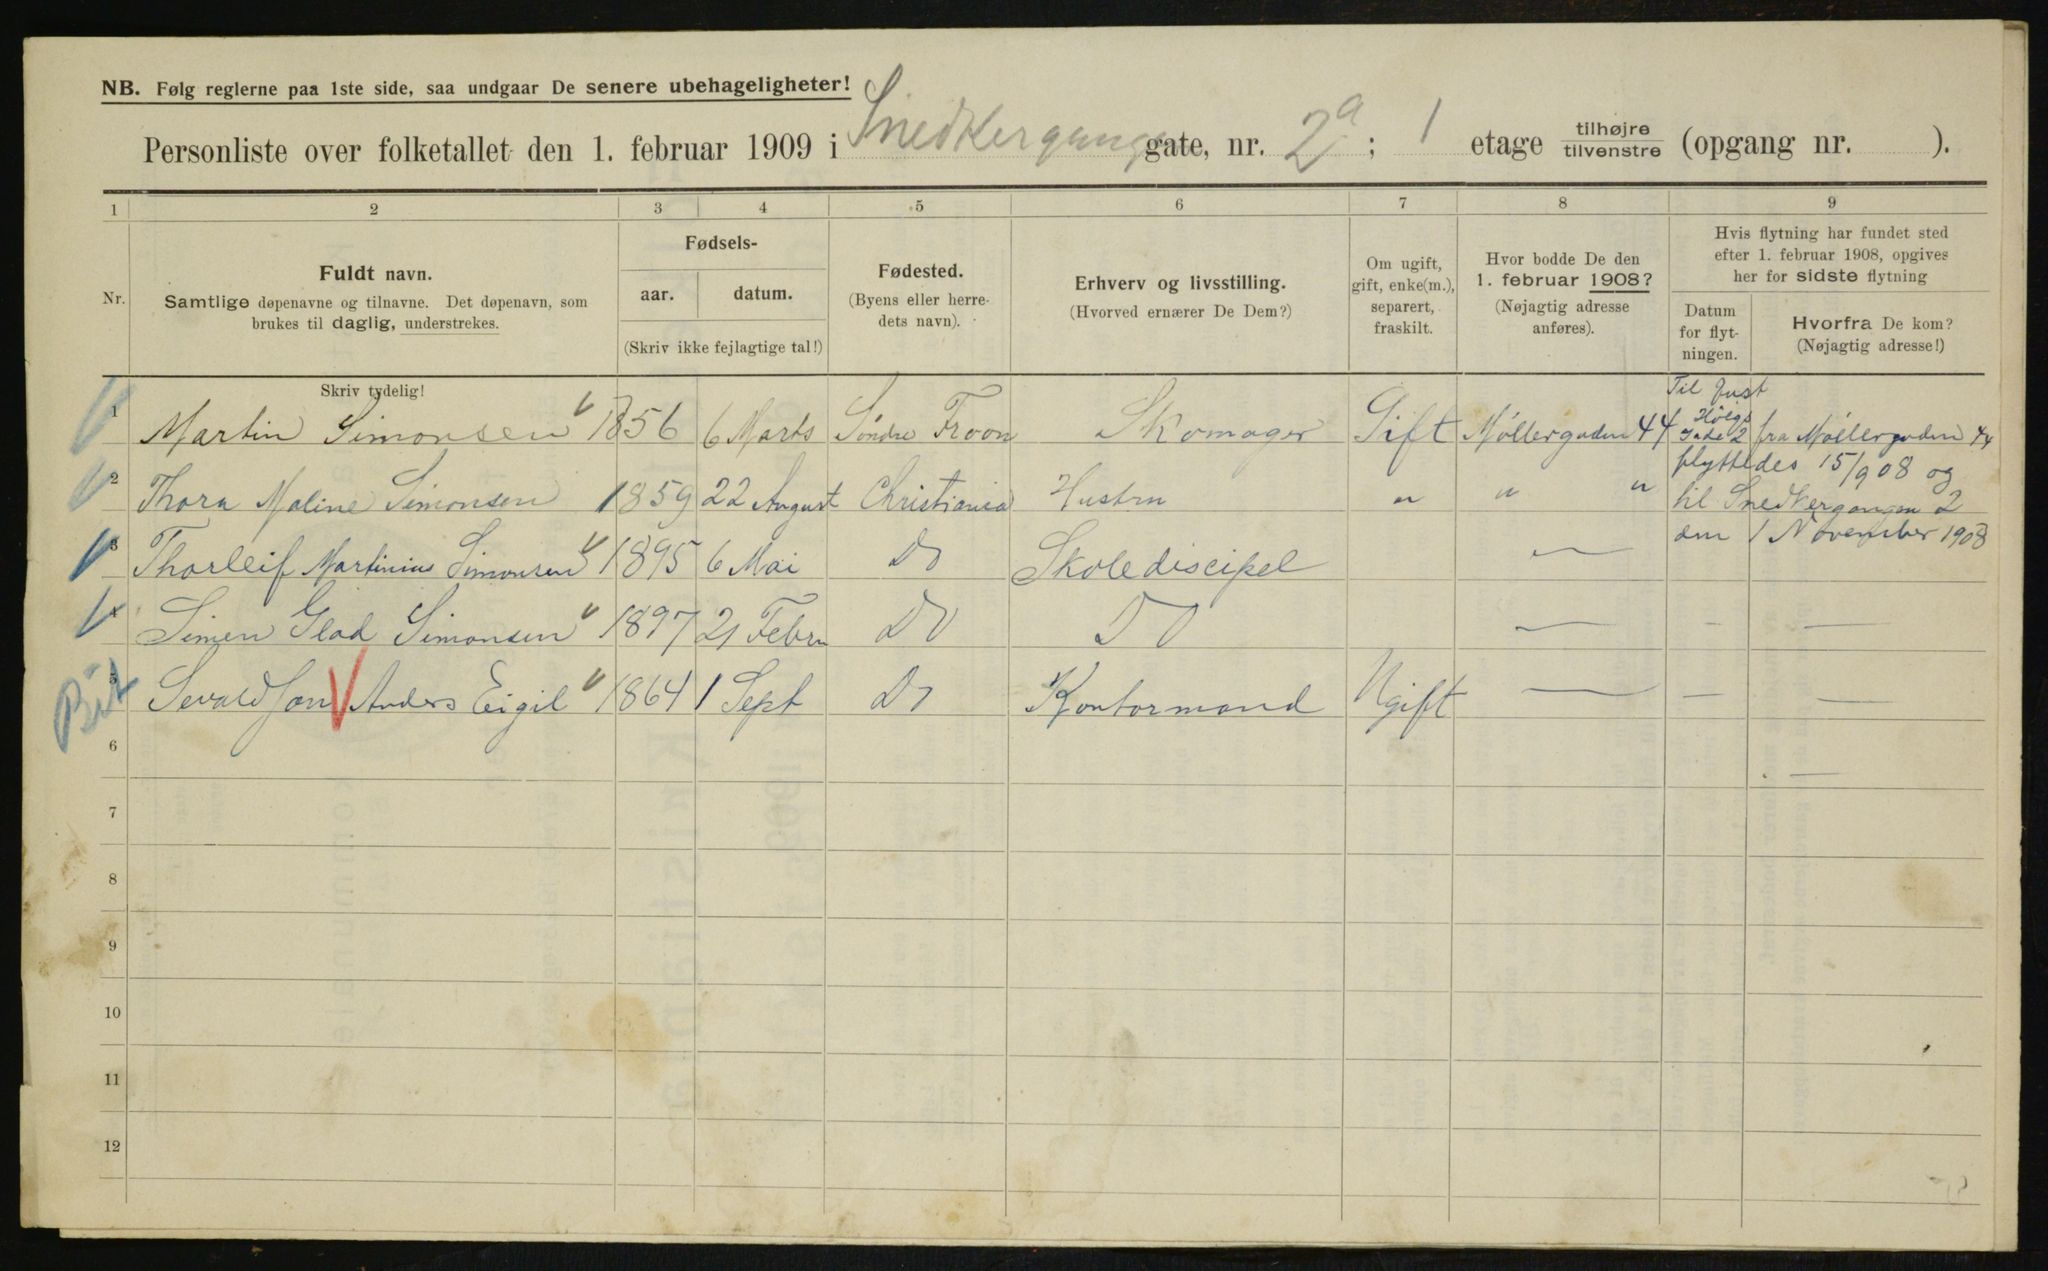 NB. Følg reglerne paa 1ste side, saa undgaar De senere ubehageligheter!
Personliste over folketallet den 1. februar 1909 i Snedkergangen gate, nr. 2a ; 1 etage tilhøjre tilvenstre (opgang nr. ).
1 2 3 4 5 6 7 8 9
Nr.
Fuldt navn.
Samtlige døpenavne og tilnavne. Det døpenavn, som
brukes til daglig, understrekes.
Fødsels-
aar. datum.
(Skriv ikke fejlagtige tal!)
Fødested.
(Byens eller herre-
dets navn).
Erhverv og livsstilling.
(Hvorved ernærer De Dem?)
Om ugift,
gift, enke(m.),
separert,
fraskilt.
Hvor bodde De den
1. februar 1908?
(Nøjagtig adresse
anføres).
Hvis flytning har fundet sted
efter 1. februar 1908, opgives
her for sidste flytning
Datum
for flyt-
ningen.
Hvorfra De kom?
(Nøjagtig adresse!)
Skriv tydelig!
1 Martin Simonsen 1856 6 Marts Söndre Froon Skomager Gift Møllergaden 44
2 Thora Maline Simonsen 1859 22 August Christiania Hustru " " "
3 Thorleif Martinius Simonsen 1895 6 Mai Do Skolediscipel —
4 Simen Glad Simonsen 1897 21 Febru Do Do — — —
5 Sevaldsen Anders Eigil 1864 1 Sept Do Kontormand Ugift — — —
Til Just
Gade 2 fra Møllergaden 44
flyttedes 15/9 08 og
til Snedkergangen 2
den 1 November 1908
6 —
7
8
9
10
11
12